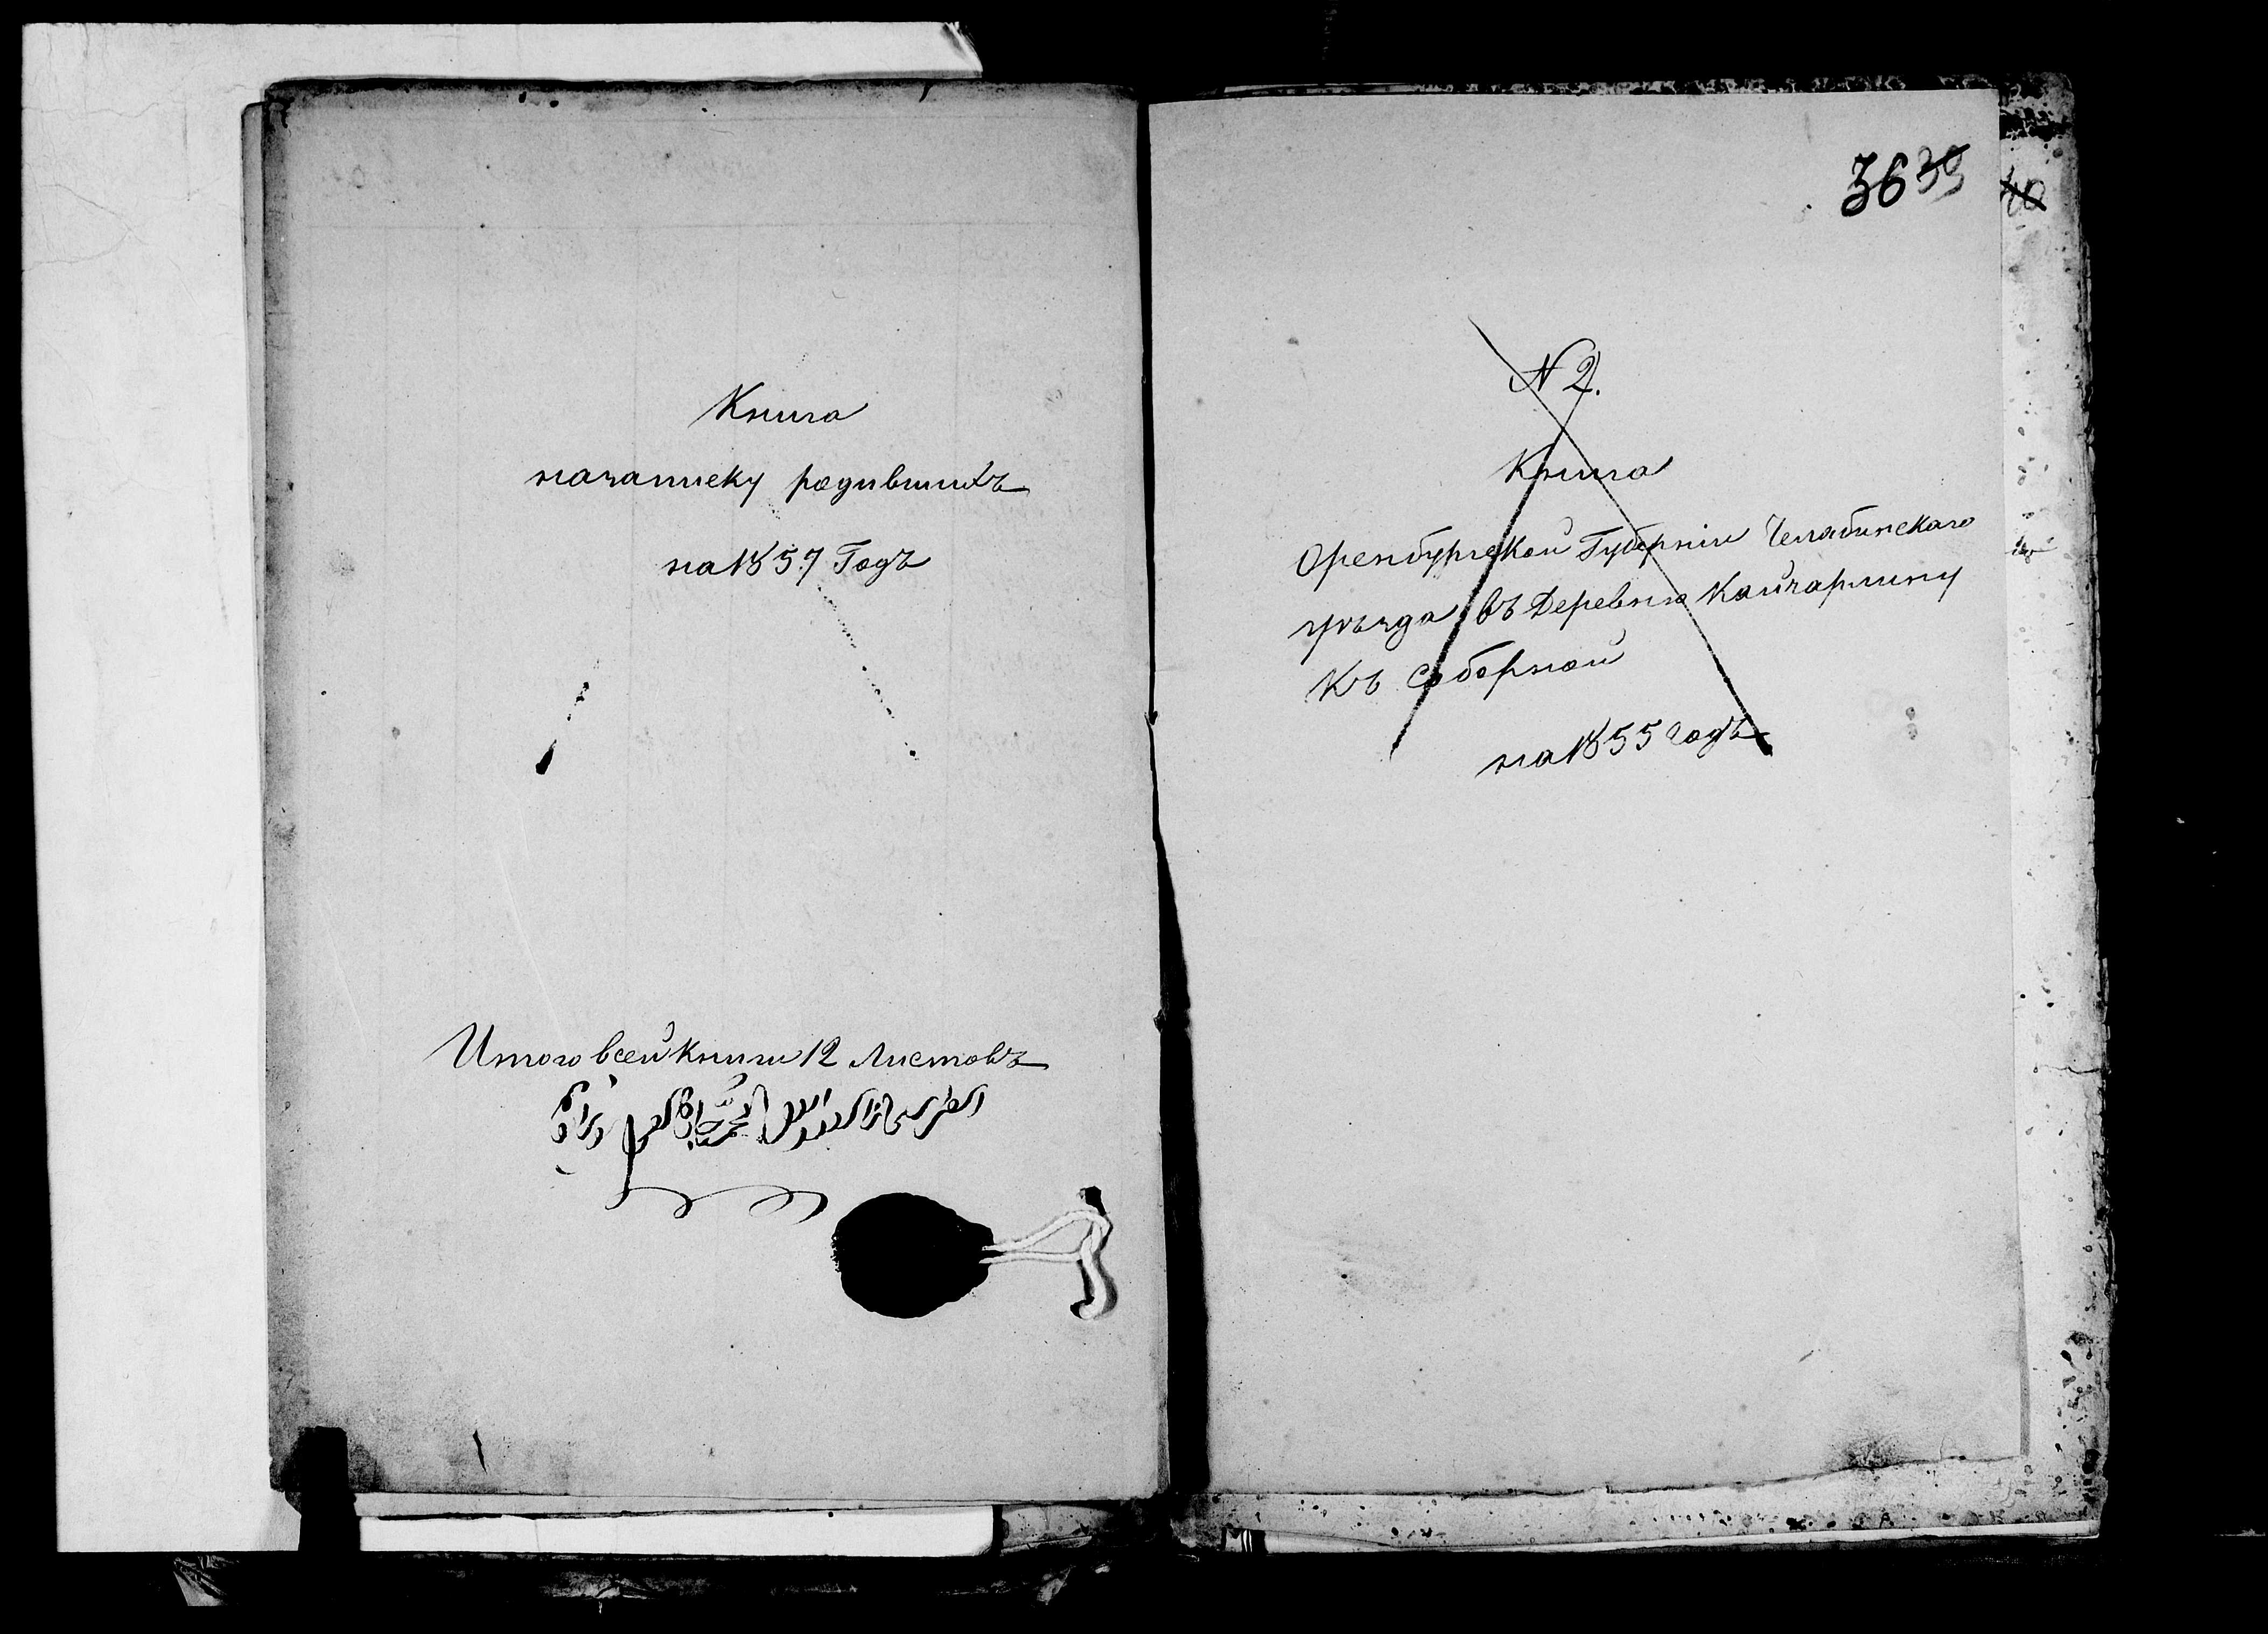 Книга
назаписку родившихъ
на 1857 Годъ
Итого всей книги 12 Листовъ
36 39
40
N 2.
Книга
Оренбургской Губерніи Челябинскаго
уѣзда въ Деревню Кайчармину
Къ Соборной
на 1855 годъ